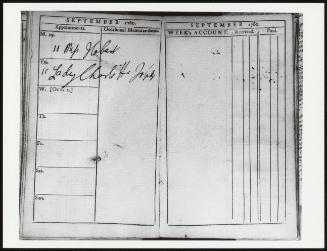 SEPTEMBER 1760.
Appointments. Occasional Memorandums
M. 29.
11 Miss
Tu.
11 Lady Charlott
W. [Oct. 1.]
Th.
Fr.
Sat.
Sun.
SEPTEMBER 1760.
WEEK's ACCOUNT. Received. Paid.